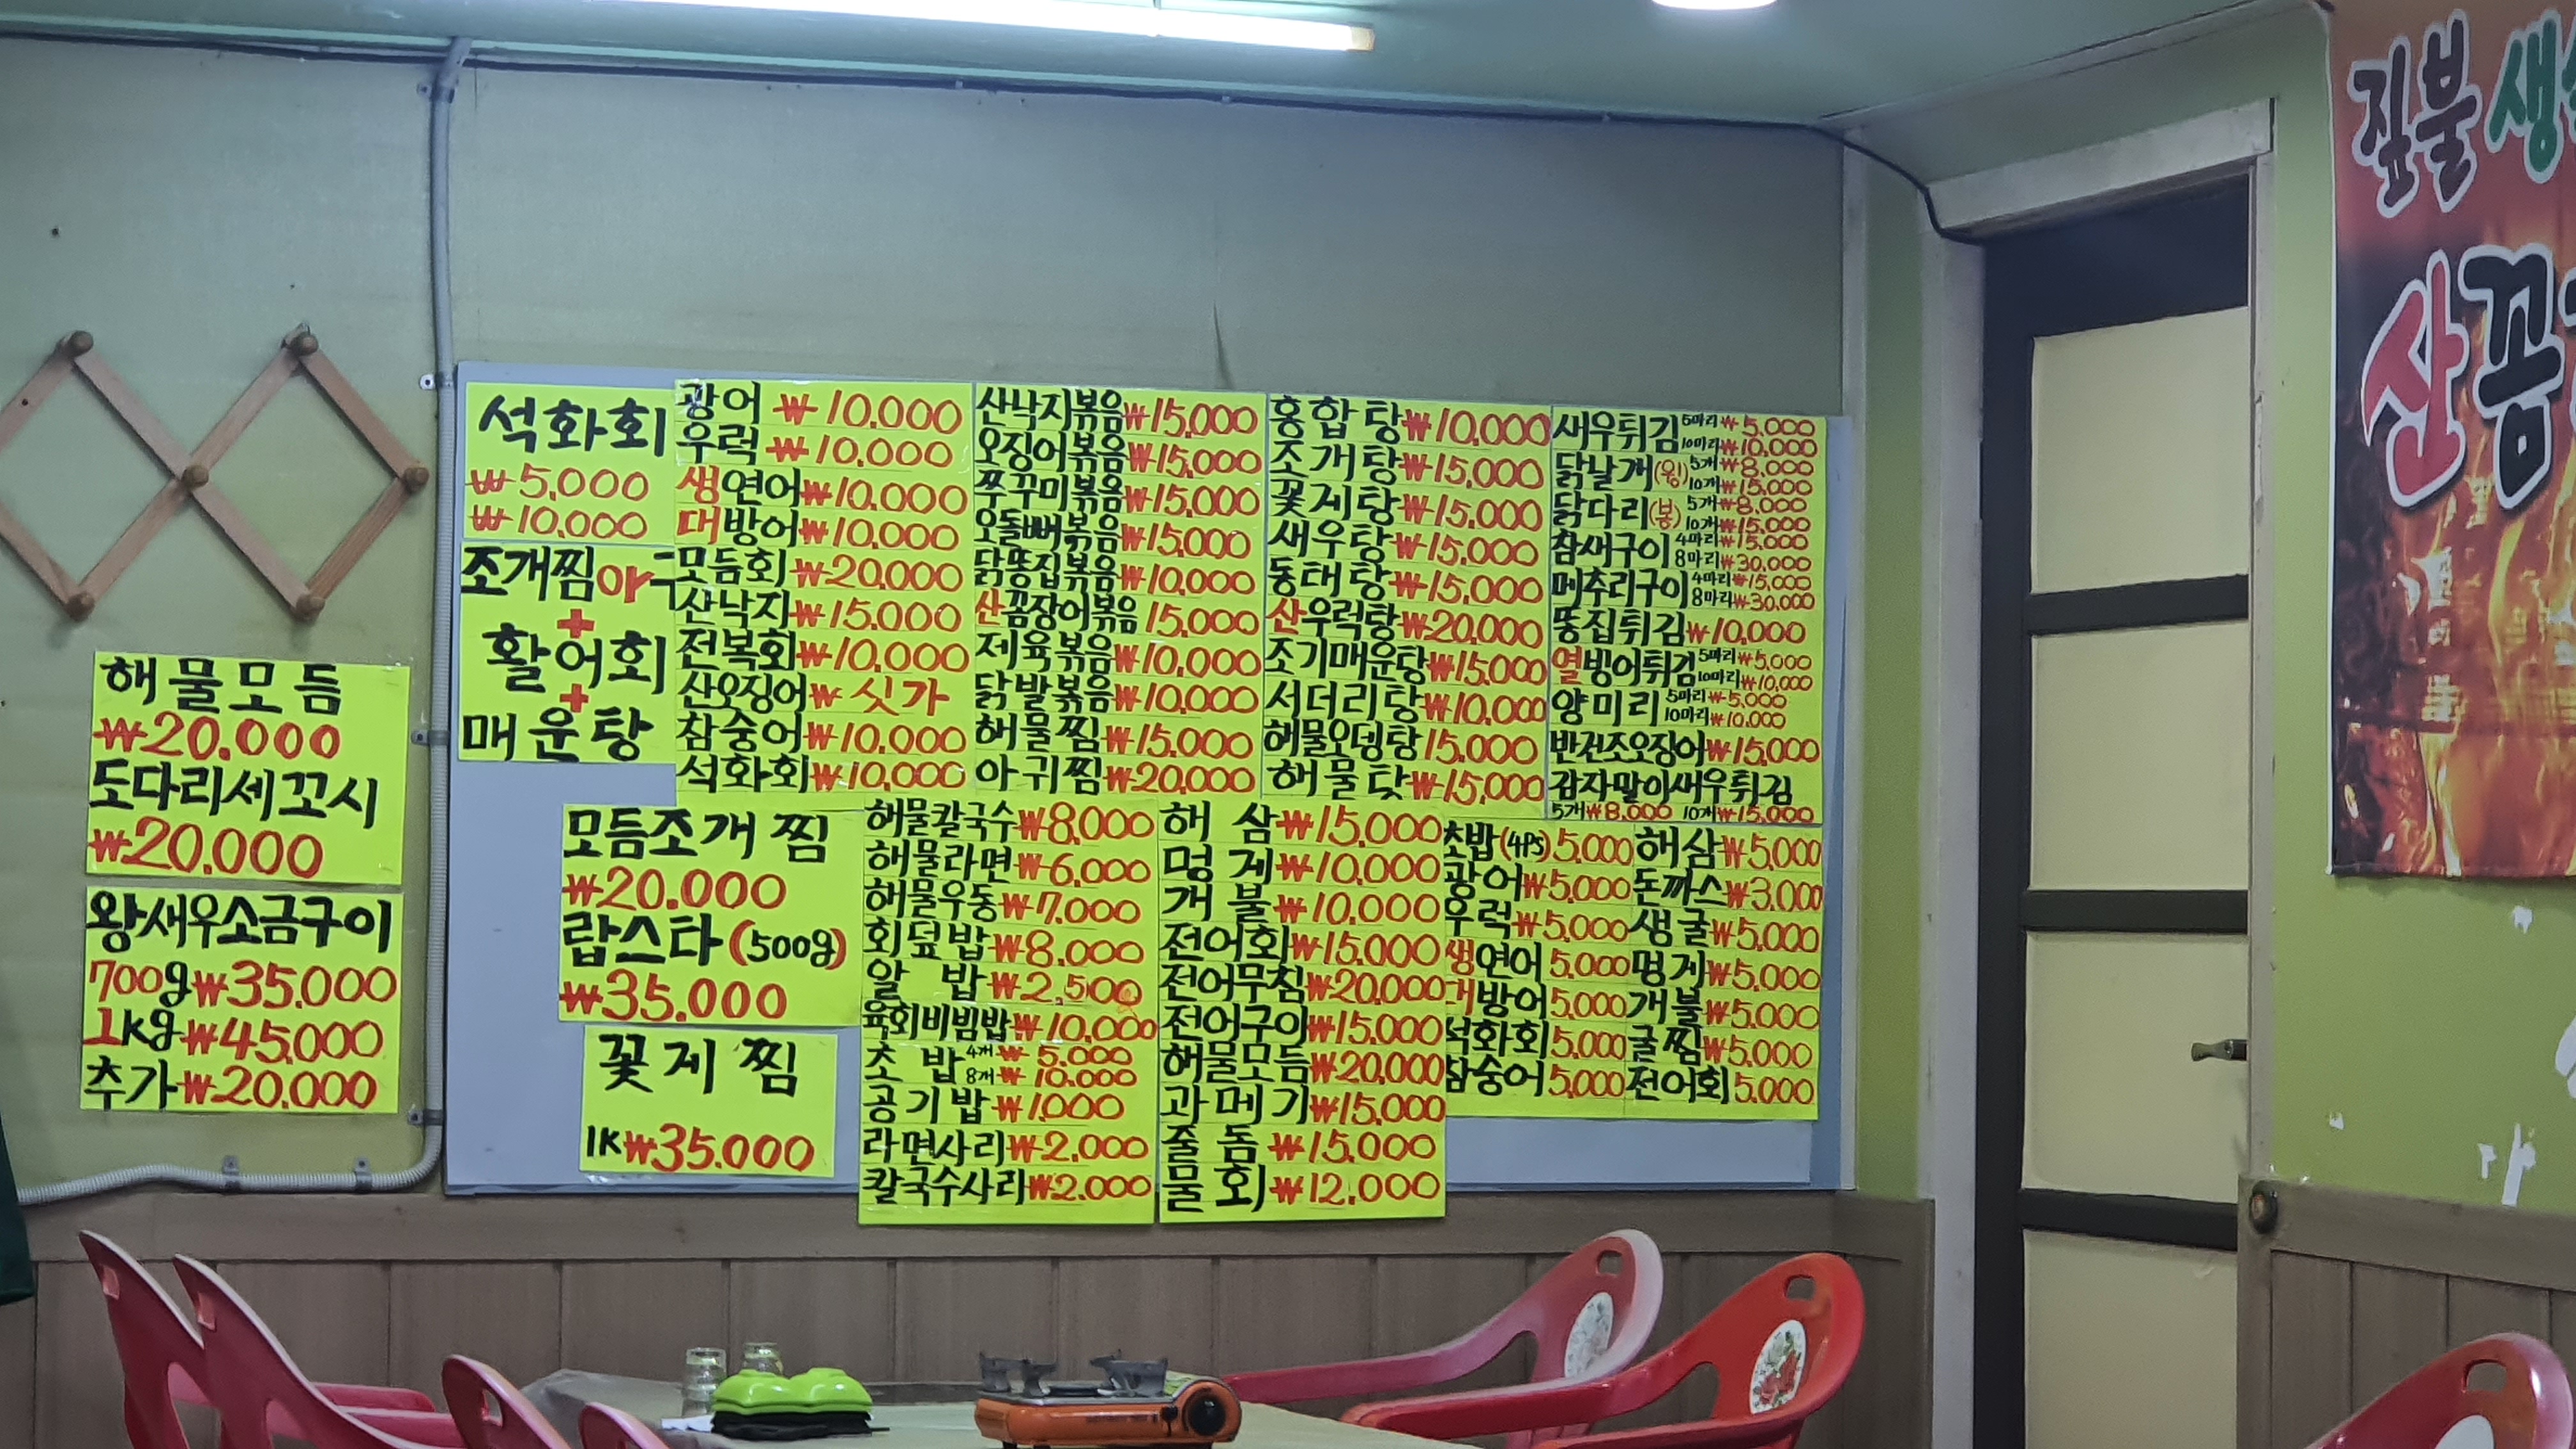 해물모듬
₩20.000
도다리세꼬시
₩20.000
왕새우소금구이
700g ₩35.000
1kg ₩45.000
추가 ₩20.000
석화회
₩5.000
₩10.000
조개찜or구
+
활어회
+
매운탕
광어 ₩10.000
우럭 ₩10.000
생연어 ₩10.000
대방어 ₩10.000
모듬회 ₩20.000
산낙지 ₩15.000
전복회 ₩10.000
산오징어 ₩ 싯가
참숭어 ₩10.000
석화회 ₩10.000
산낙지볶음 ₩15.000
오징어볶음 ₩15.000
쭈꾸미볶음 ₩15.000
오돌뼈볶음 ₩15.000
닭똥집볶음 ₩10.000
산꼼장어볶음 15.000
제육볶음 ₩10.000
닭발볶음 ₩10.000
해물찜 ₩15.000
아귀찜 ₩20.000
홍합탕 ₩10.000
조개탕 ₩15.000
꽃게탕 ₩15.000
새우탕 ₩15.000
동태탕 ₩15.000
산우럭탕 ₩20.000
조기매운탕 ₩15.000
서더리탕 ₩10.000
해물오뎅탕 15.000
해물탕 ₩15.000
새우튀김 5마리 ₩5.000
10마리 ₩10.000
닭날개(윙) 5개 ₩8.000
10개 ₩15.000
닭다리(봉) 5개 ₩8.000
10개 ₩15.000
참새구이 4마리 ₩15.000
8마리 ₩30.000
메추리구이 4마리 ₩15.000
8마리 ₩30.000
똥집튀김 ₩10.000
열빙어튀김 5마리 ₩5.000
10마리 ₩10.000
양미리 5마리 ₩5.000
10마리 ₩10.000
반건조오징어 ₩15.000
감자말이새우튀김
5개 ₩8.000 10개 ₩15.000
모듬조개찜
₩20.000
랍스타(500g)
₩35.000
꽃게찜
1K ₩35.000
해물칼국수 ₩8.000
해물라면 ₩6.000
해물우동 ₩7.000
회덮밥 ₩8.000
알밥 ₩2.500
육회비빔밥 ₩10.000
초밥 4개 ₩5.000
8개 ₩10.000
공기밥 ₩1.000
라면사리 ₩2.000
칼국수사리 ₩2.000
해삼 ₩15.000
멍게 ₩10.000
개불 ₩10.000
전어회 ₩15.000
전어무침 ₩20.000
전어구이 ₩15.000
해물모듬 ₩20.000
과메기 ₩15.000
줄돔 ₩15.000
물회 ₩12.000
초밥(4PS) 5.000
광어 ₩5.000
우럭 ₩5.000
생연어 5.000
대방어 5.000
석화회 5.000
참숭어 5.000
해삼 ₩5.000
돈까스 ₩3.000
생굴 ₩5.000
멍게 ₩5.000
개불 ₩5.000
굴찜 ₩5.000
전어회 5.000
짚불 생
산꼼